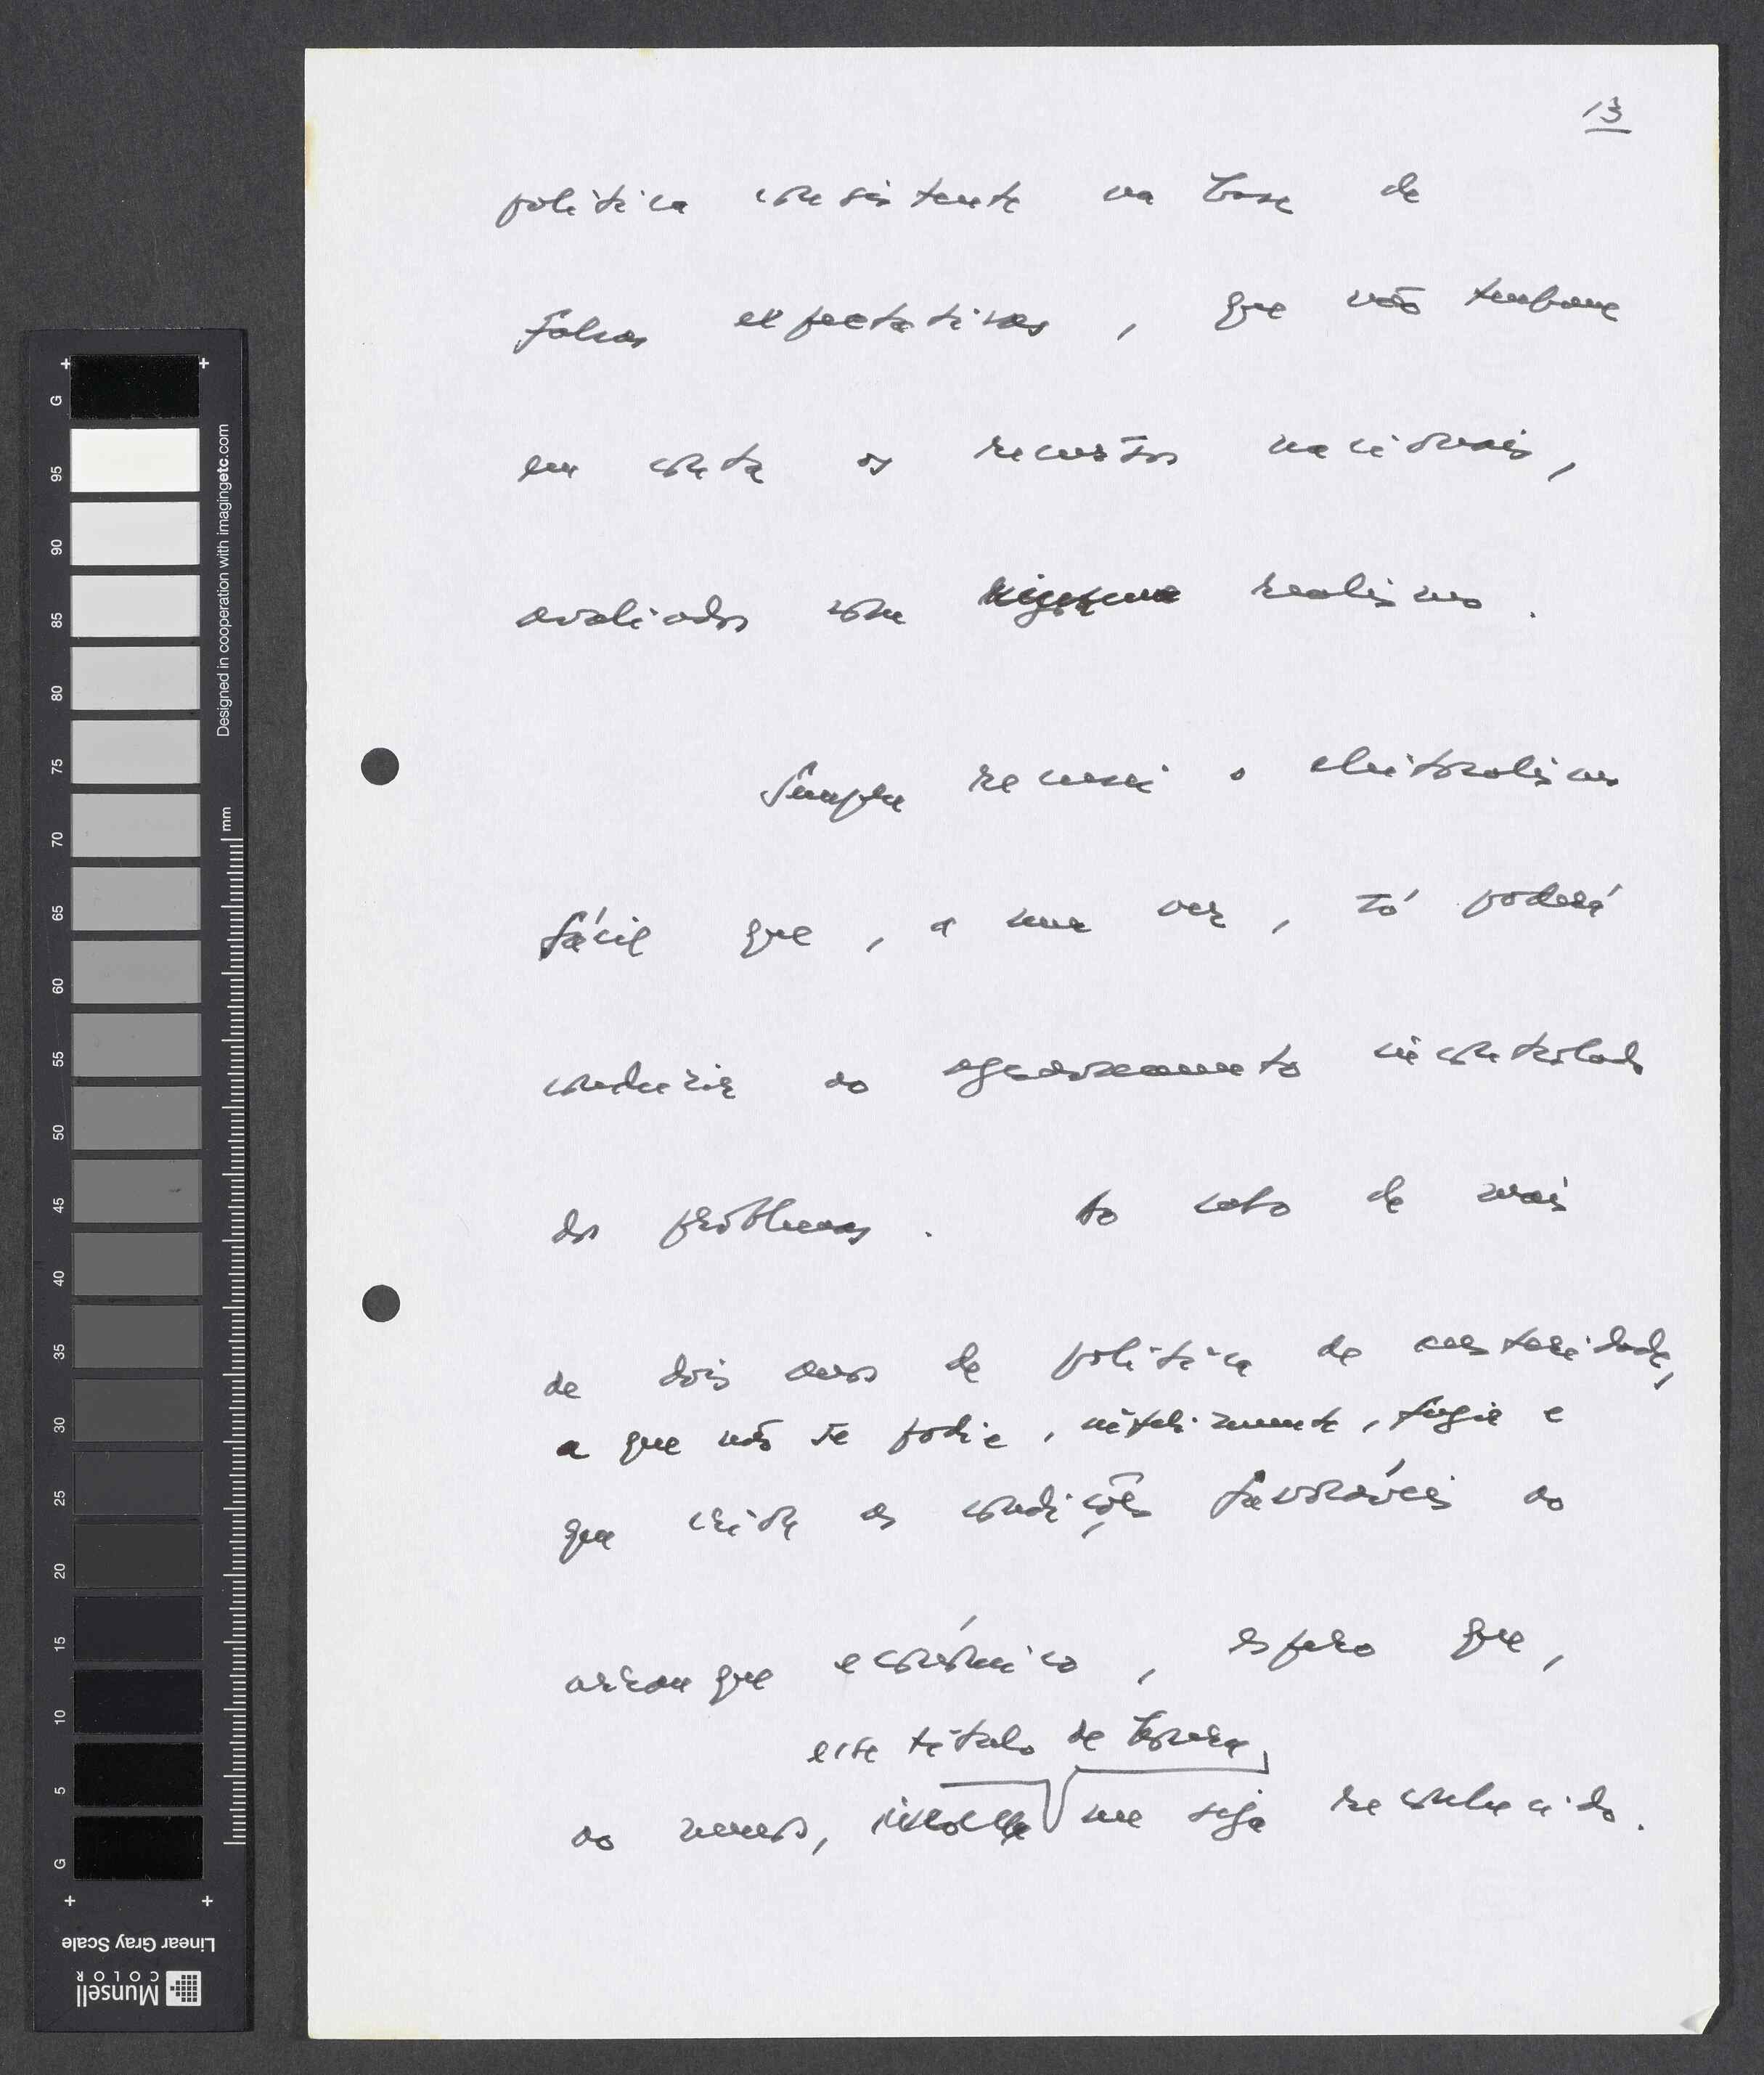 13
política consistente na base de
falsas expectativas, que não tenham
em conta os recursos nacionais,
avaliados com realismo.
Sempre recusei o eleitoralismo
fácil que, a meu ver, só poderá
conduzir ao agudizamento incontrolado
dos problemas. Ao cabo de mais
de dois anos de política de austeridade,
a que não se podia, infelizmente, fugir e
que cria as condições favoráveis ao
arranque económico, espero que,
esse título de honra,
ao menos, me seja reconhecido.
G
95
90
85
80
75
70
65
60
55
50
45
40
35
30
25
20
15
10
5
G
mm
Designed in cooperation with imagingetc.com
Linear Gray Scale
Munsell
COLOR